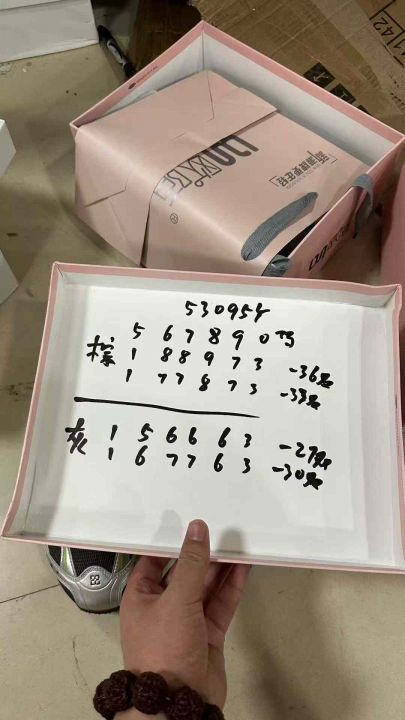 1142
530954
5 6 7 8 9 0 码
棕 1 8 8 9 7 3 -36双
1 7 7 8 7 3 -33双
灰 1 5 6 6 6 3 -27双
1 6 7 7 6 3 -30双